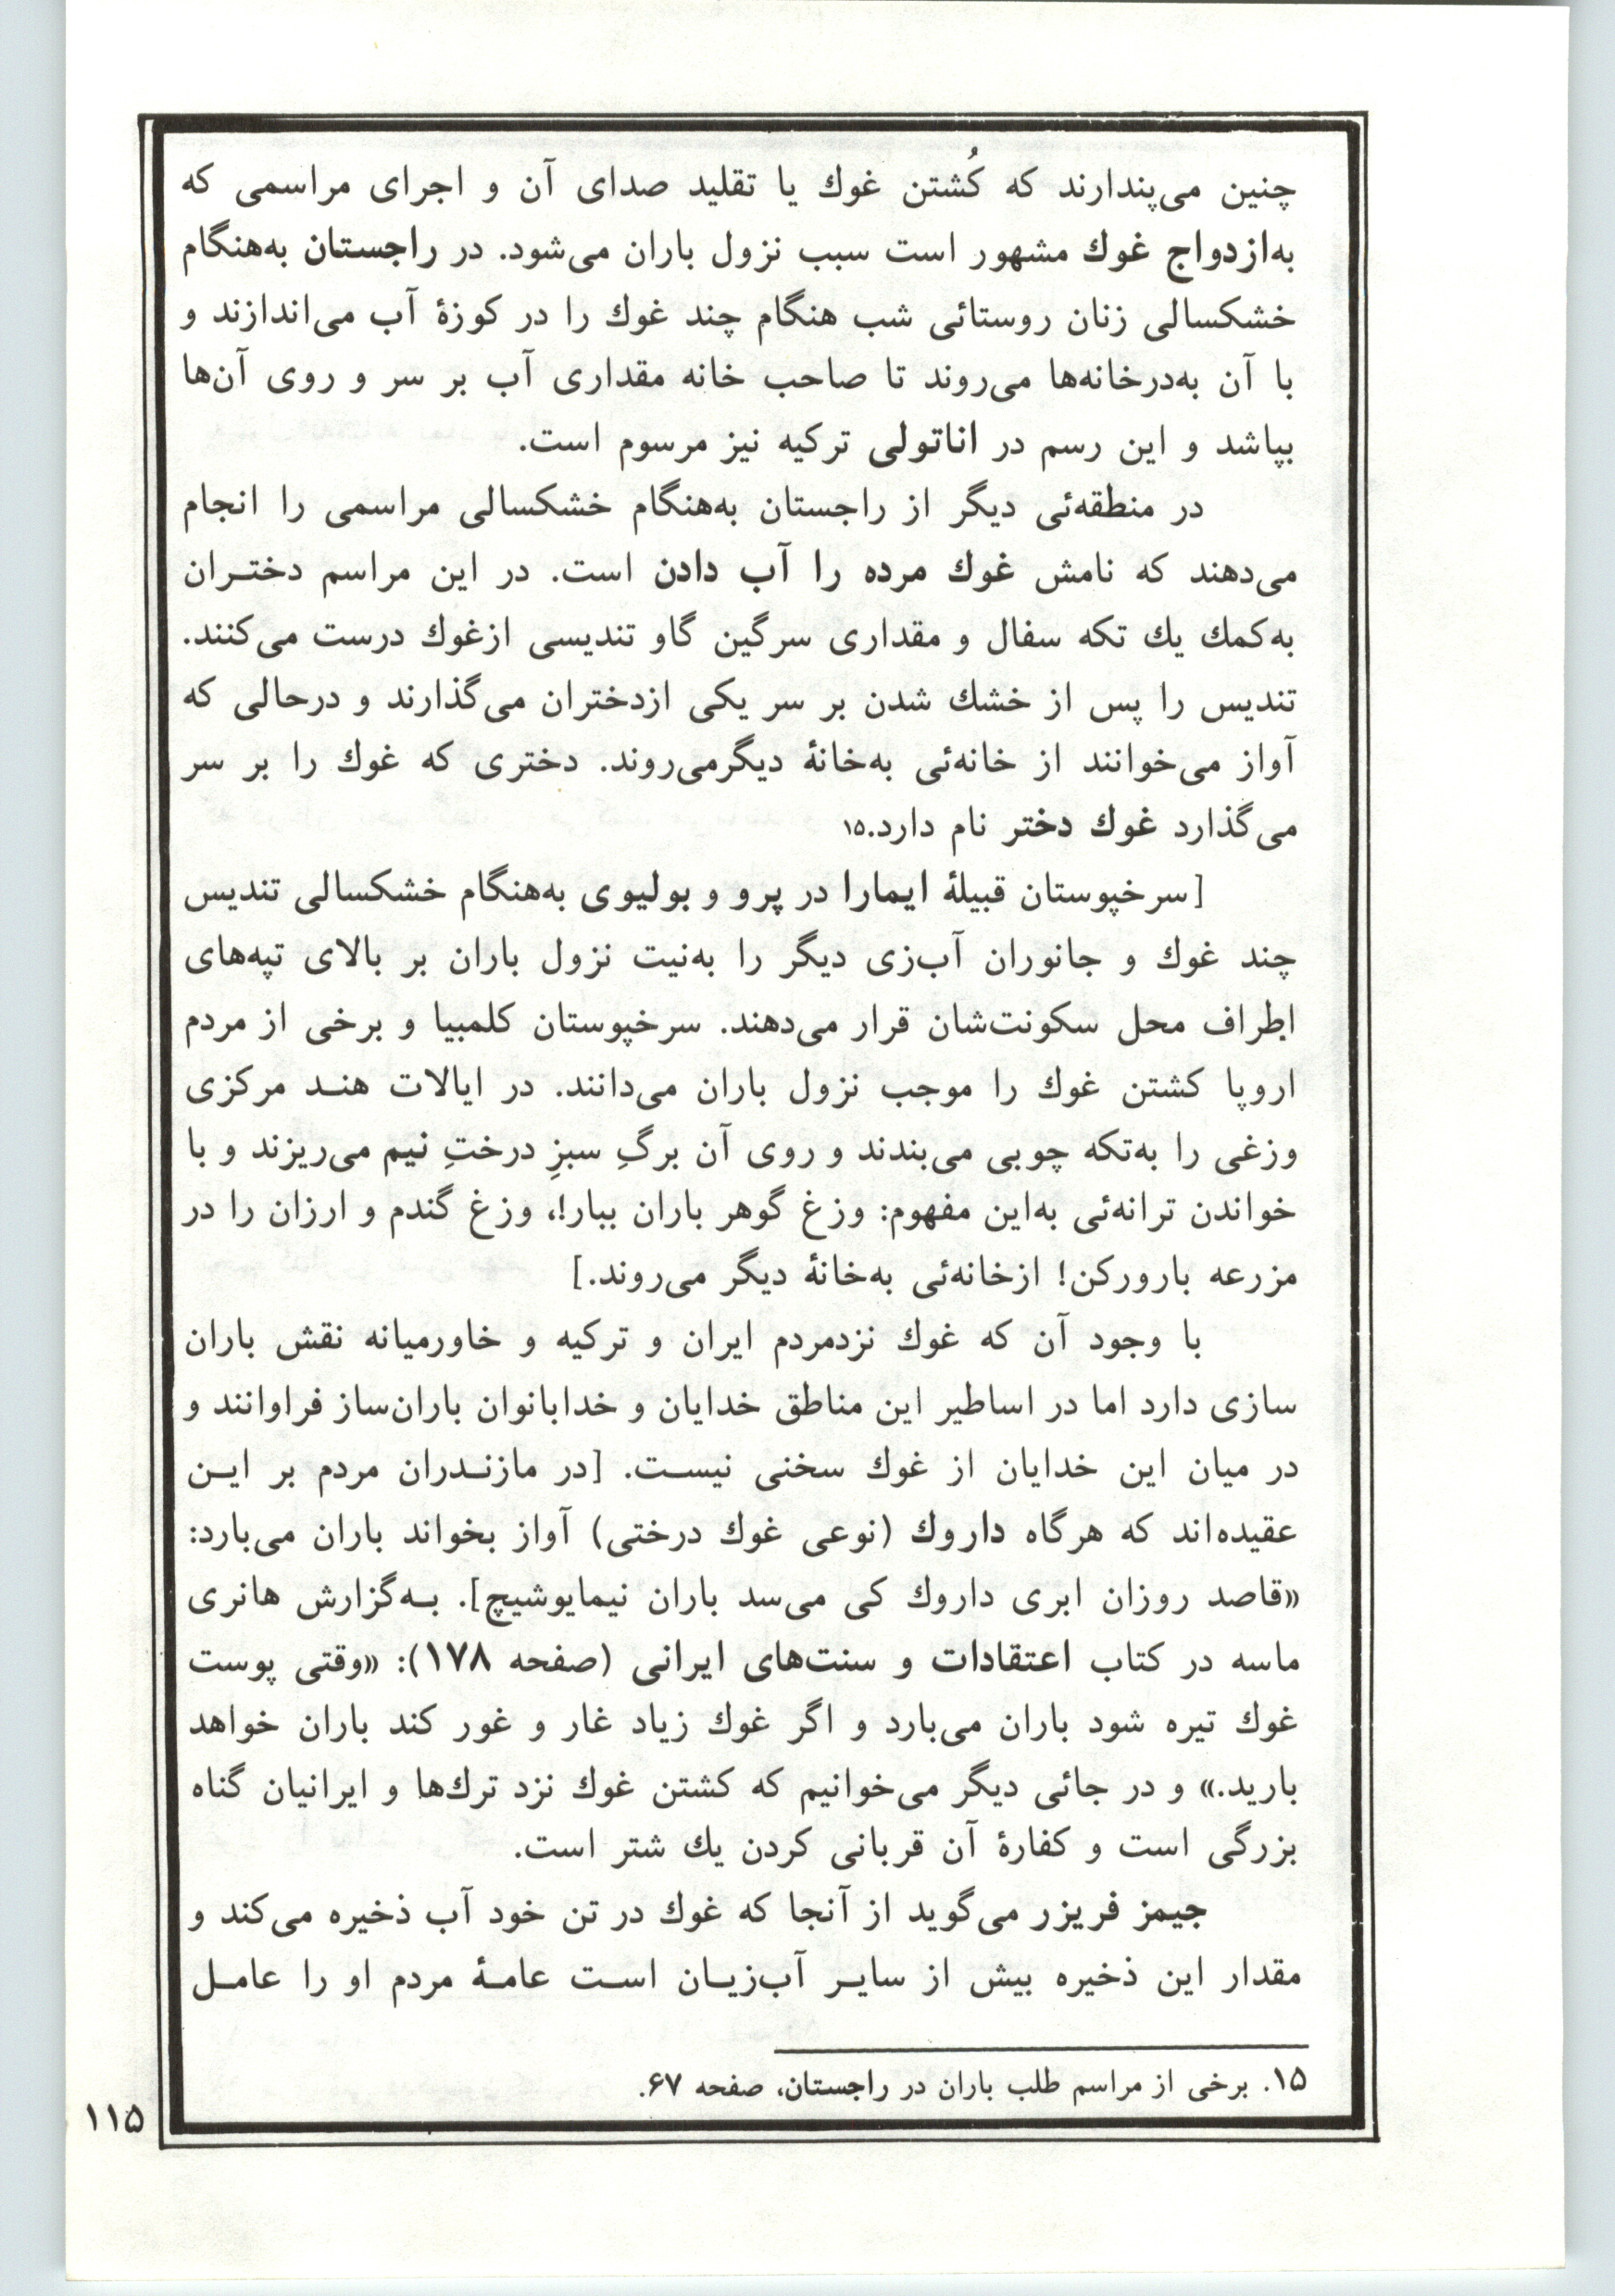 چنین می‌پندارند که کُشتن غوك یا تقلید صدای آن و اجرای مراسمی که
به‌ازدواج غوك مشهور است سبب نزول باران می‌شود. در راجستان به‌هنگام
خشکسالی زنان روستائی شب هنگام چند غوك را در کوزهٔ آب می‌اندازند و
با آن به‌درخانه‌ها می‌روند تا صاحب خانه مقداری آب بر سر و روی آن‌ها
بپاشد و این رسم در اناتولی ترکیه نیز مرسوم است.
در منطقه‌ئی دیگر از راجستان به‌هنگام خشکسالی مراسمی را انجام
می‌دهند که نامش غوك مرده را آب دادن است. در این مراسم دختـران
به‌کمك یك تکه سفال و مقداری سرگین گاو تندیسی ازغوك درست می‌کنند.
تندیس را پس از خشك شدن بر سر یکی ازدختران می‌گذارند و درحالی که
آواز می‌خوانند از خانه‌ئی به‌خانهٔ دیگرمی‌روند. دختری که غوك را بر سر
می‌گذارد غوك دختر نام دارد.۱۵
[سرخپوستان قبیلهٔ ایمارا در پرو و بولیوی به‌هنگام خشکسالی تندیس
چند غوك و جانوران آب‌زی دیگر را به‌نیت نزول باران بر بالای تپه‌های
اطراف محل سکونت‌شان قرار می‌دهند. سرخپوستان کلمبیا و برخی از مردم
اروپا کشتن غوك را موجب نزول باران می‌دانند. در ایالات هنـد مرکزی
وزغی را به‌تکه چوبی می‌بندند و روی آن برگِ سبزِ درختِ نیم می‌ریزند و با
خواندن ترانه‌ئی به‌این مفهوم: وزغ گوهر باران ببار!، وزغ گندم و ارزان را در
مزرعه بارورکن! ازخانه‌ئی به‌خانهٔ دیگر می‌روند.]
با وجود آن که غوك نزدمردم ایران و ترکیه و خاورمیانه نقش باران
سازی دارد اما در اساطیر این مناطق خدایان و خدابانوان باران‌ساز فراوانند و
در میان این خدایان از غوك سخنی نیسـت. [در مازنـدران مردم بر ایـن
عقیده‌اند که هرگاه داروك (نوعی غوك درختی) آواز بخواند باران می‌بارد:
«قاصد روزان ابری داروك کی می‌سد باران نیمایوشیچ]. بـه‌گزارش هانری
ماسه در کتاب اعتقادات و سنت‌های ایرانی (صفحه ۱۷۸): «وقتی پوست
غوك تیره شود باران می‌بارد و اگر غوك زیاد غار و غور کند باران خواهد
بارید.» و در جائی دیگر می‌خوانیم که کشتن غوك نزد ترك‌ها و ایرانیان گناه
بزرگی است و کفارهٔ آن قربانی کردن یك شتر است.
جیمز فریزر می‌گوید از آنجا که غوك در تن خود آب ذخیره می‌کند و
مقدار این ذخیره بیش از سایـر آب‌زیـان اسـت عامـهٔ مردم او را عامـل
۱۵. برخی از مراسم طلب باران در راجستان، صفحه ۶۷.
۱۱۵